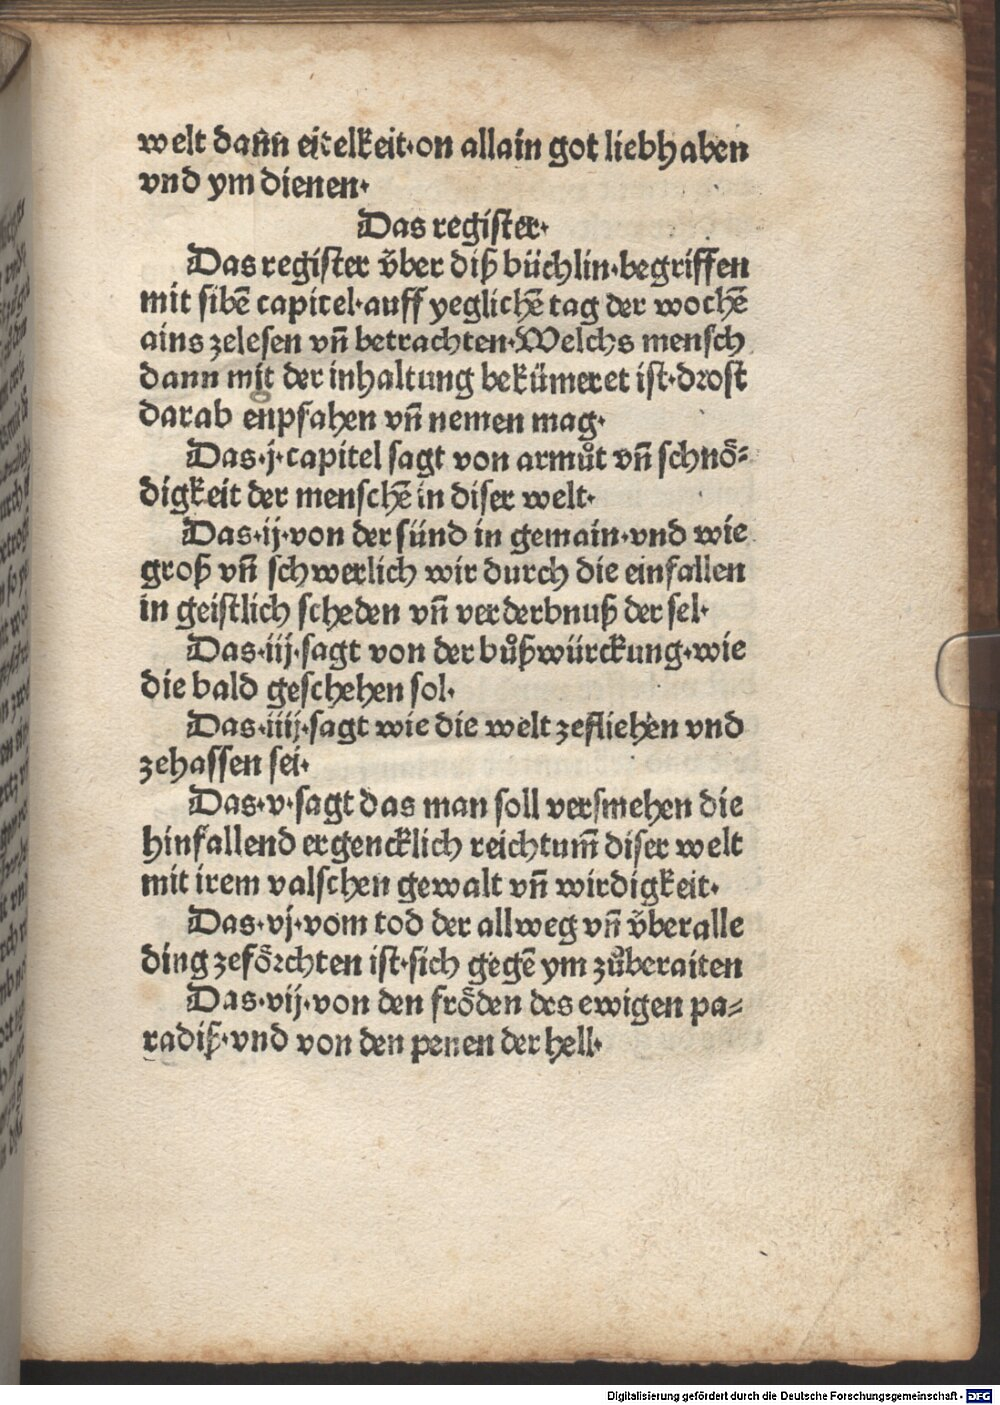 welt dann eitelkeit·on allain got liebhaben
vnd ym dienen·
Das register·
Das register v̈ber diß büchlin·begriffen
mit sibē capitel·auff yeglichē tag der wochē
ains zelesen vn̄ betrachten·Welchs mensch
dann mit der inhaltung bekümeret ist·drost
darab enpfahen vn̄ nemen mag·
Das·j·capitel sagt von armůt vn̄ schnö⸗
digkeit der menschē in diser welt·
Das·ij·von der sünd in gemain·vnd wie
groß vn̄ schwerlich wir durch die einfallen
in geistlich scheden vn̄ verderbnuß der sel·
Das·iij·sagt von der bůßwürckung·wie
die bald geschehen sol·
Das·iiij·sagt wie die welt zefliehen vnd
zehassen sei·
Das·v·sagt das man soll versmehen die
hinfallend ergencklich reichtum̄ diser welt
mit irem valschen gewalt vn̄ wirdigkeit·
Das·vj·vom tod der allweg vn̄ v̈beralle
ding zeförchten ist·sich gegē ym zůberaiten
Das·vij·von den fröden des ewigen pa⸗
radiß·vnd von den penen der hell·
Digitalisierung gefördert durch die Deutsche Forschungsgemeinschaft - DFG